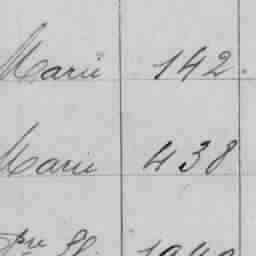 Marie 142.
Marie 438